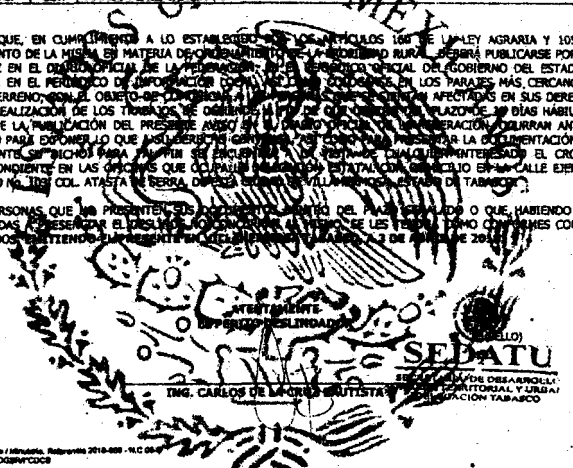 QUE, EN CUMPLIMIENTO A LO ESTABLECIDO POR LOS ARTÍCULOS 160 DE LA LEY AGRARIA Y 105
NTO DE LA MISMA EN MATERIA DE ORDENAMIENTO DE LA PROPIEDAD RURAL, DEBERÁ PUBLICARSE POR
Z EN EL DIARIO OFICIAL DE LA FEDERACIÓN, EN EL PERIÓDICO OFICIAL DEL GOBIERNO DEL ESTAD
EN EL PERIÓDICO DE INFORMACIÓN LOCAL, ASÍ COMO COLOCARSE EN LOS PARAJES MÁS CERCANO
ERRENO, CON EL OBJETO DE AFECTADAS EN SUS DERE
EALIZACIÓN DE LOS TRABAJOS DE DESLINDE, A FIN DE QUE DENTRO DEL PLAZO DE 30 DÍAS HÁBIL
E LA PUBLICACIÓN DEL PRESENTE AVISO EN EL DIARIO OFICIAL DE LA FEDERACIÓN, OCURRAN ANT
O PARA EXPONER LO QUE A SU DERECHO CONVENGA, ASÍ COMO PARA PRESENTAR LA DOCUMENTACIÓN
NTE SU DICHO. PARA TAL FIN SE ENCUENTRA A LA VISTA DE CUALQUIER INTERESADO EL CRO
ONDIENTE EN LAS OFICINAS QUE OCUPA LA DELEGACIÓN ESTATAL, CON DOMICILIO EN LA CALLE EJE
O No. 103, COL. ATASTA DE SERRA, DE ESTA CIUDAD DE VILLAHERMOSA, ESTADO DE TABASCO.
ERSONAS QUE NO PRESENTEN SUS DOCUMENTOS DENTRO DEL PLAZO SEÑALADO O QUE, HABIENDO
DAS A PRESENCIAR EL DESLINDE, NO CONCURRAN AL MISMO, SE LES TENDRÁ COMO CONFORMES CO
DOS. EMITIENDO EL PRESENTE EN VILLAHERMOSA, TABASCO, A 2 DE DE
ATENTAMENTE
EL PERITO DESLINDADOR
(SELLO)
SEDATU
SECRETARÍA DE DESARROLLO
TERRITORIAL Y URBA
DELEGACIÓN TABASCO
ING. CARLOS DE LA CRUZ BAUTISTA
/ Minutario. Referencia